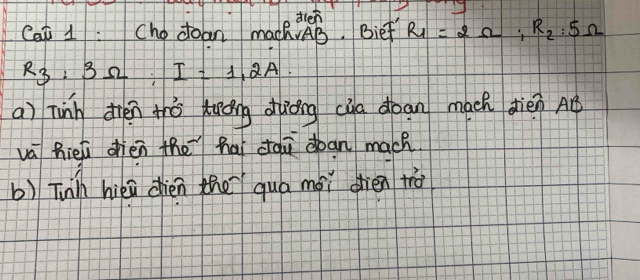 Câu 1 : Cho đoạn mạch điện AB. Biết R1 = 2 Ω ; R2 : 5 Ω
R3 : 3 Ω ; I = 1,2A.
a) Tính điện trở tương đương của đoạn mạch điện AB
và hiệu điện thế hai đầu đoạn mạch.
b) Tính hiệu điện thế qua mỗi điện trở